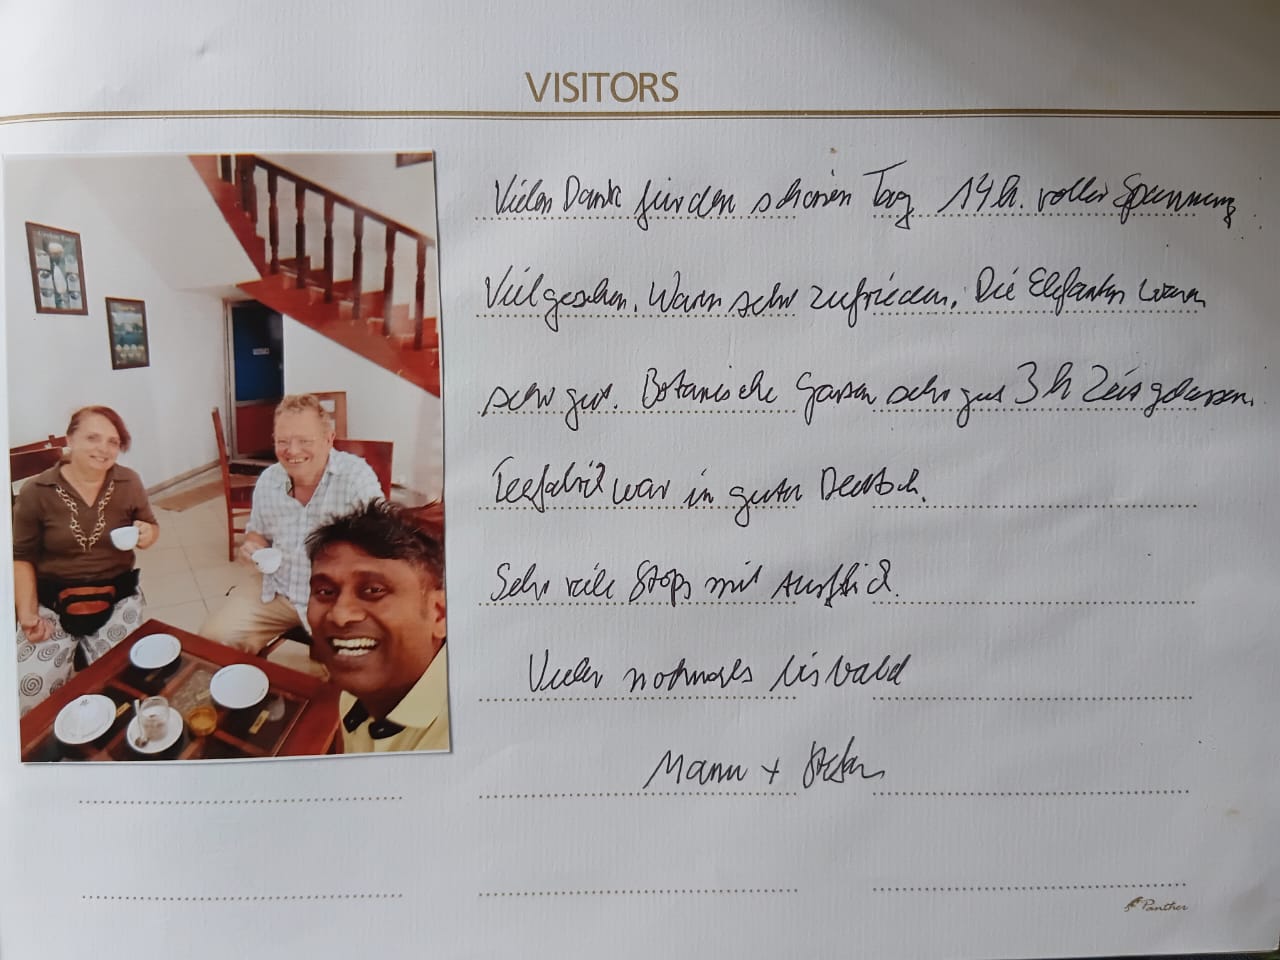 VISITORS
Vielen Dank für den schönen Tag 14 h. voller Spannung
Viel gesehen. Waren sehr zufrieden. Die Elefanten waren
sehr gut. Botanische Garten sehr gut 3 h Zeit gelassen.
Teefabrik war in guten Deutsch.
Sehr viele Stops mit Ausblick.
nochmals bis bald
Manu +
Panther